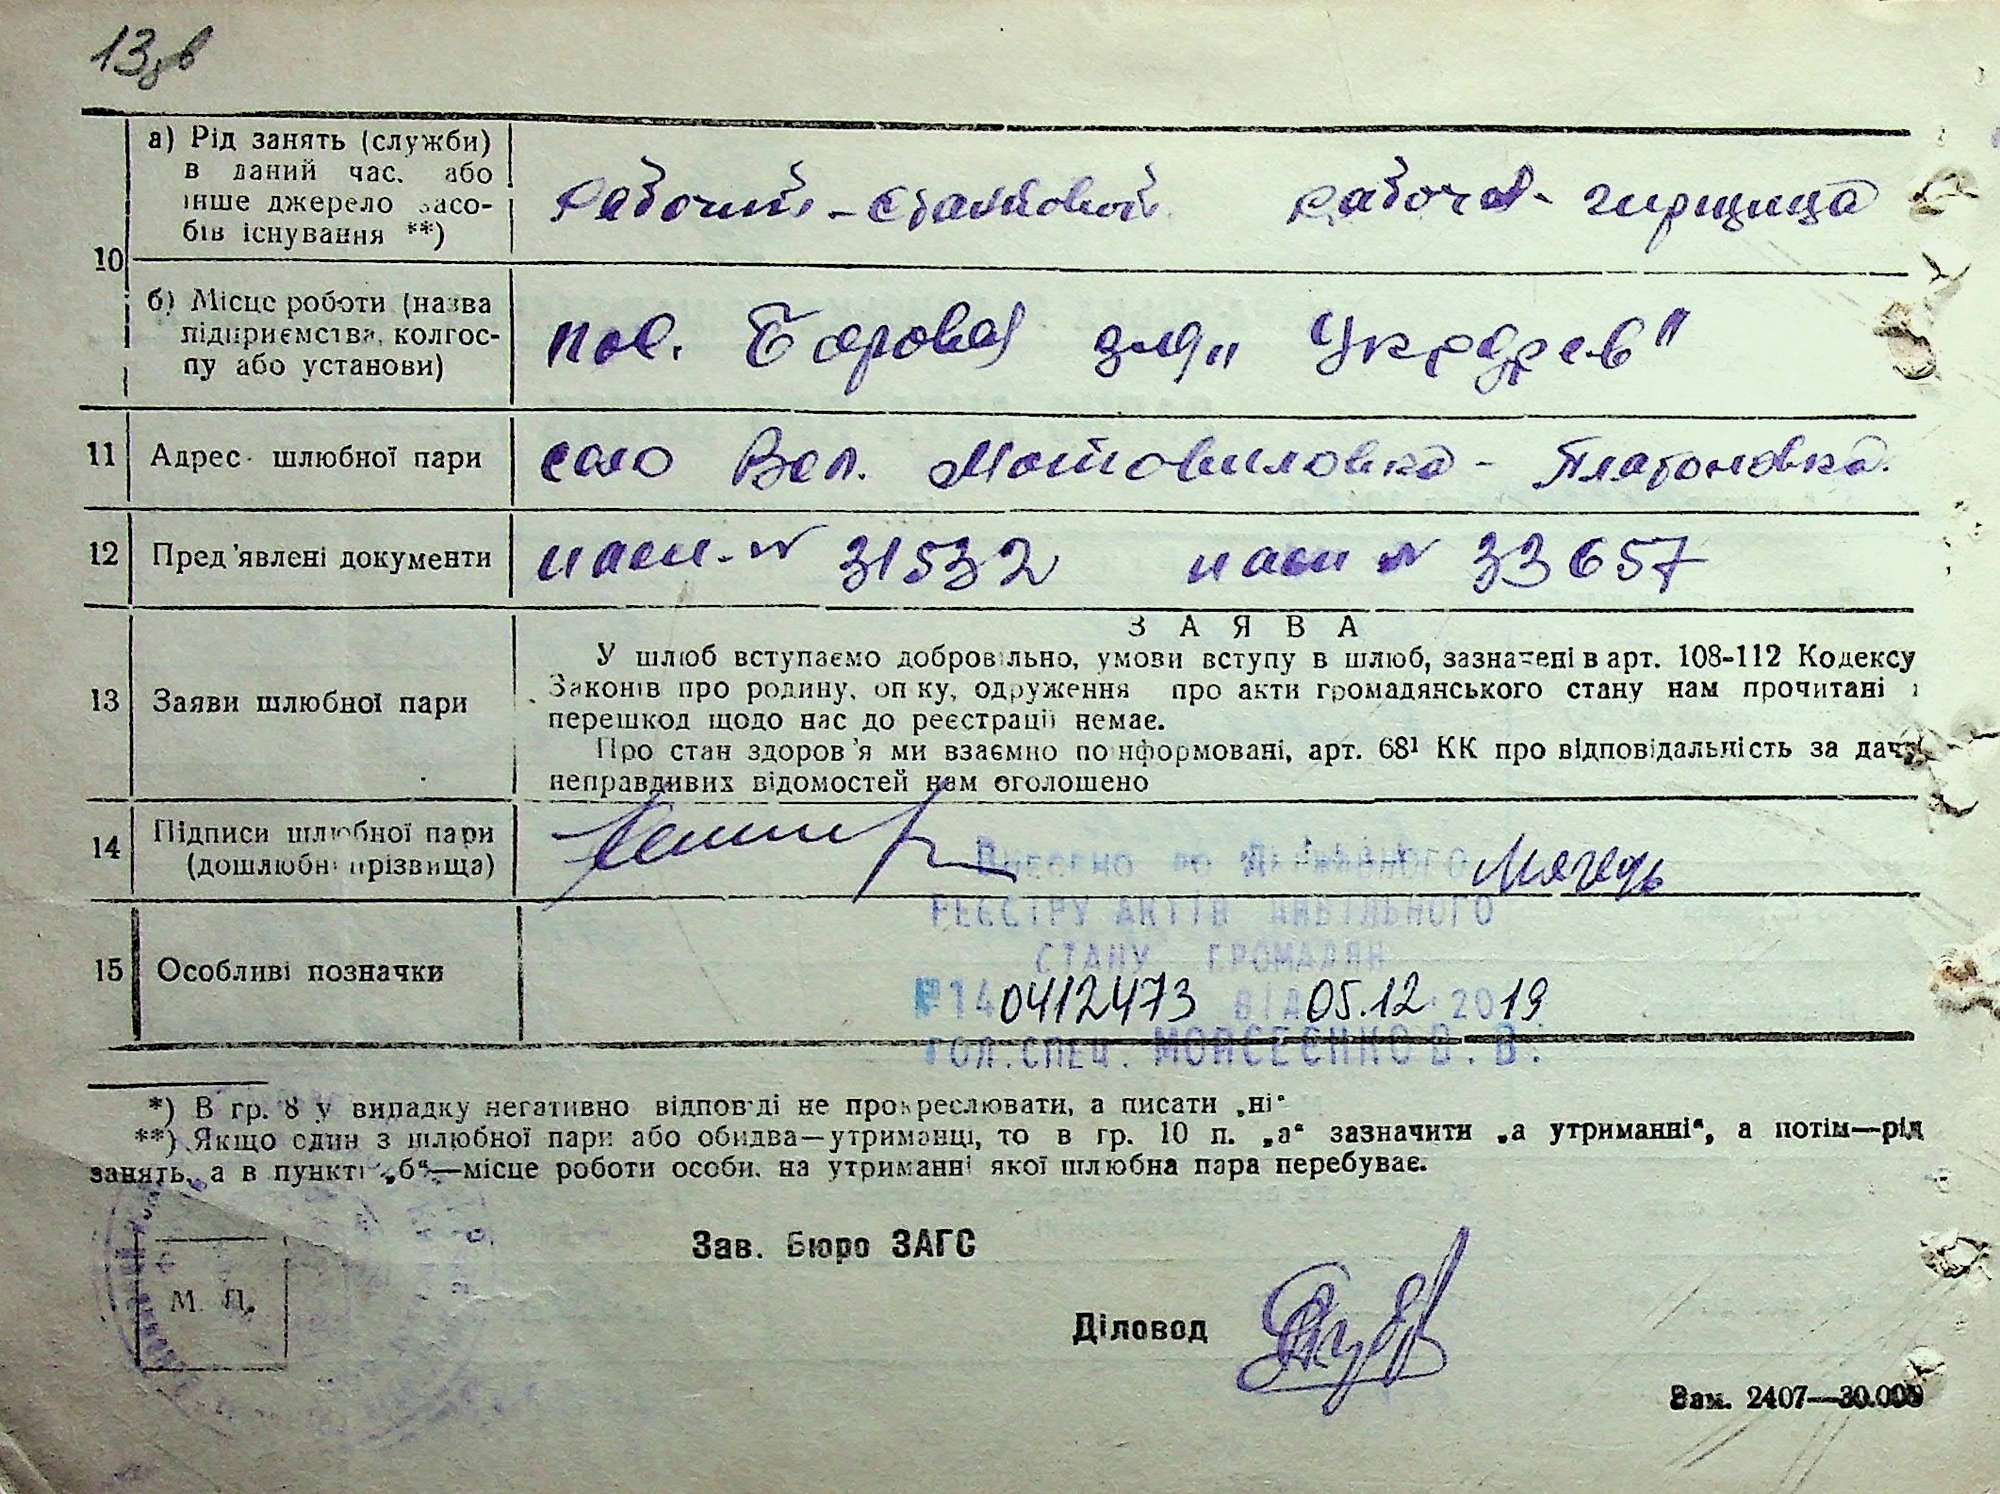 13
10
а) Рід занять (служби)
в даний час, або
інше джерело засо-
бів існування **)
Рабочий - становой рабочая - гирщица
б) Місце роботи (назва
підприємства, колгос-
пу або установи)
пос. Боровая "Укрдрев"
11 Адрес шлюбної пари
село Вел. Мотовиловка - Платоновка.
12 Пред'явлені документи
пасп. N 31532 пасп N 33657
13 Заяви шлюбної пари
ЗАЯВА
У шлюб вступаємо добровільно, умови вступу в шлюб, зазначені в арт. 108-112 Кодексу
Законів про родину, опіку, одруження про акти громадянського стану нам прочитані і
перешкод щодо нас до реєстрації немає.
Про стан здоров'я ми взаємно поінформовані, арт. 68¹ КК про відповідальність за дачу
неправдивих відомостей нам оголошено
14 Підписи шлюбної пари
(дошлюбні прізвища)
Внесено до Державного
реєстру актів цивільного
стану громадян
№140412473 від 05.12.2019
Гол.спец. Мойсеєнко В.В.
15 Особливі позначки
*) В гр. 8 у випадку негативно відповіді не прокреслювати, а писати „ні“
**) Якщо один з шлюбної пари або обидва—утриманці, то в гр. 10 п. „а“ зазначити „а утриманні“, а потім—рід
занять, а в пункті „б“—місце роботи особи, на утриманні якої шлюбна пара перебуває.
Зав. Бюро ЗАГС
М. П.
Діловод
Зам. 2407—30.000